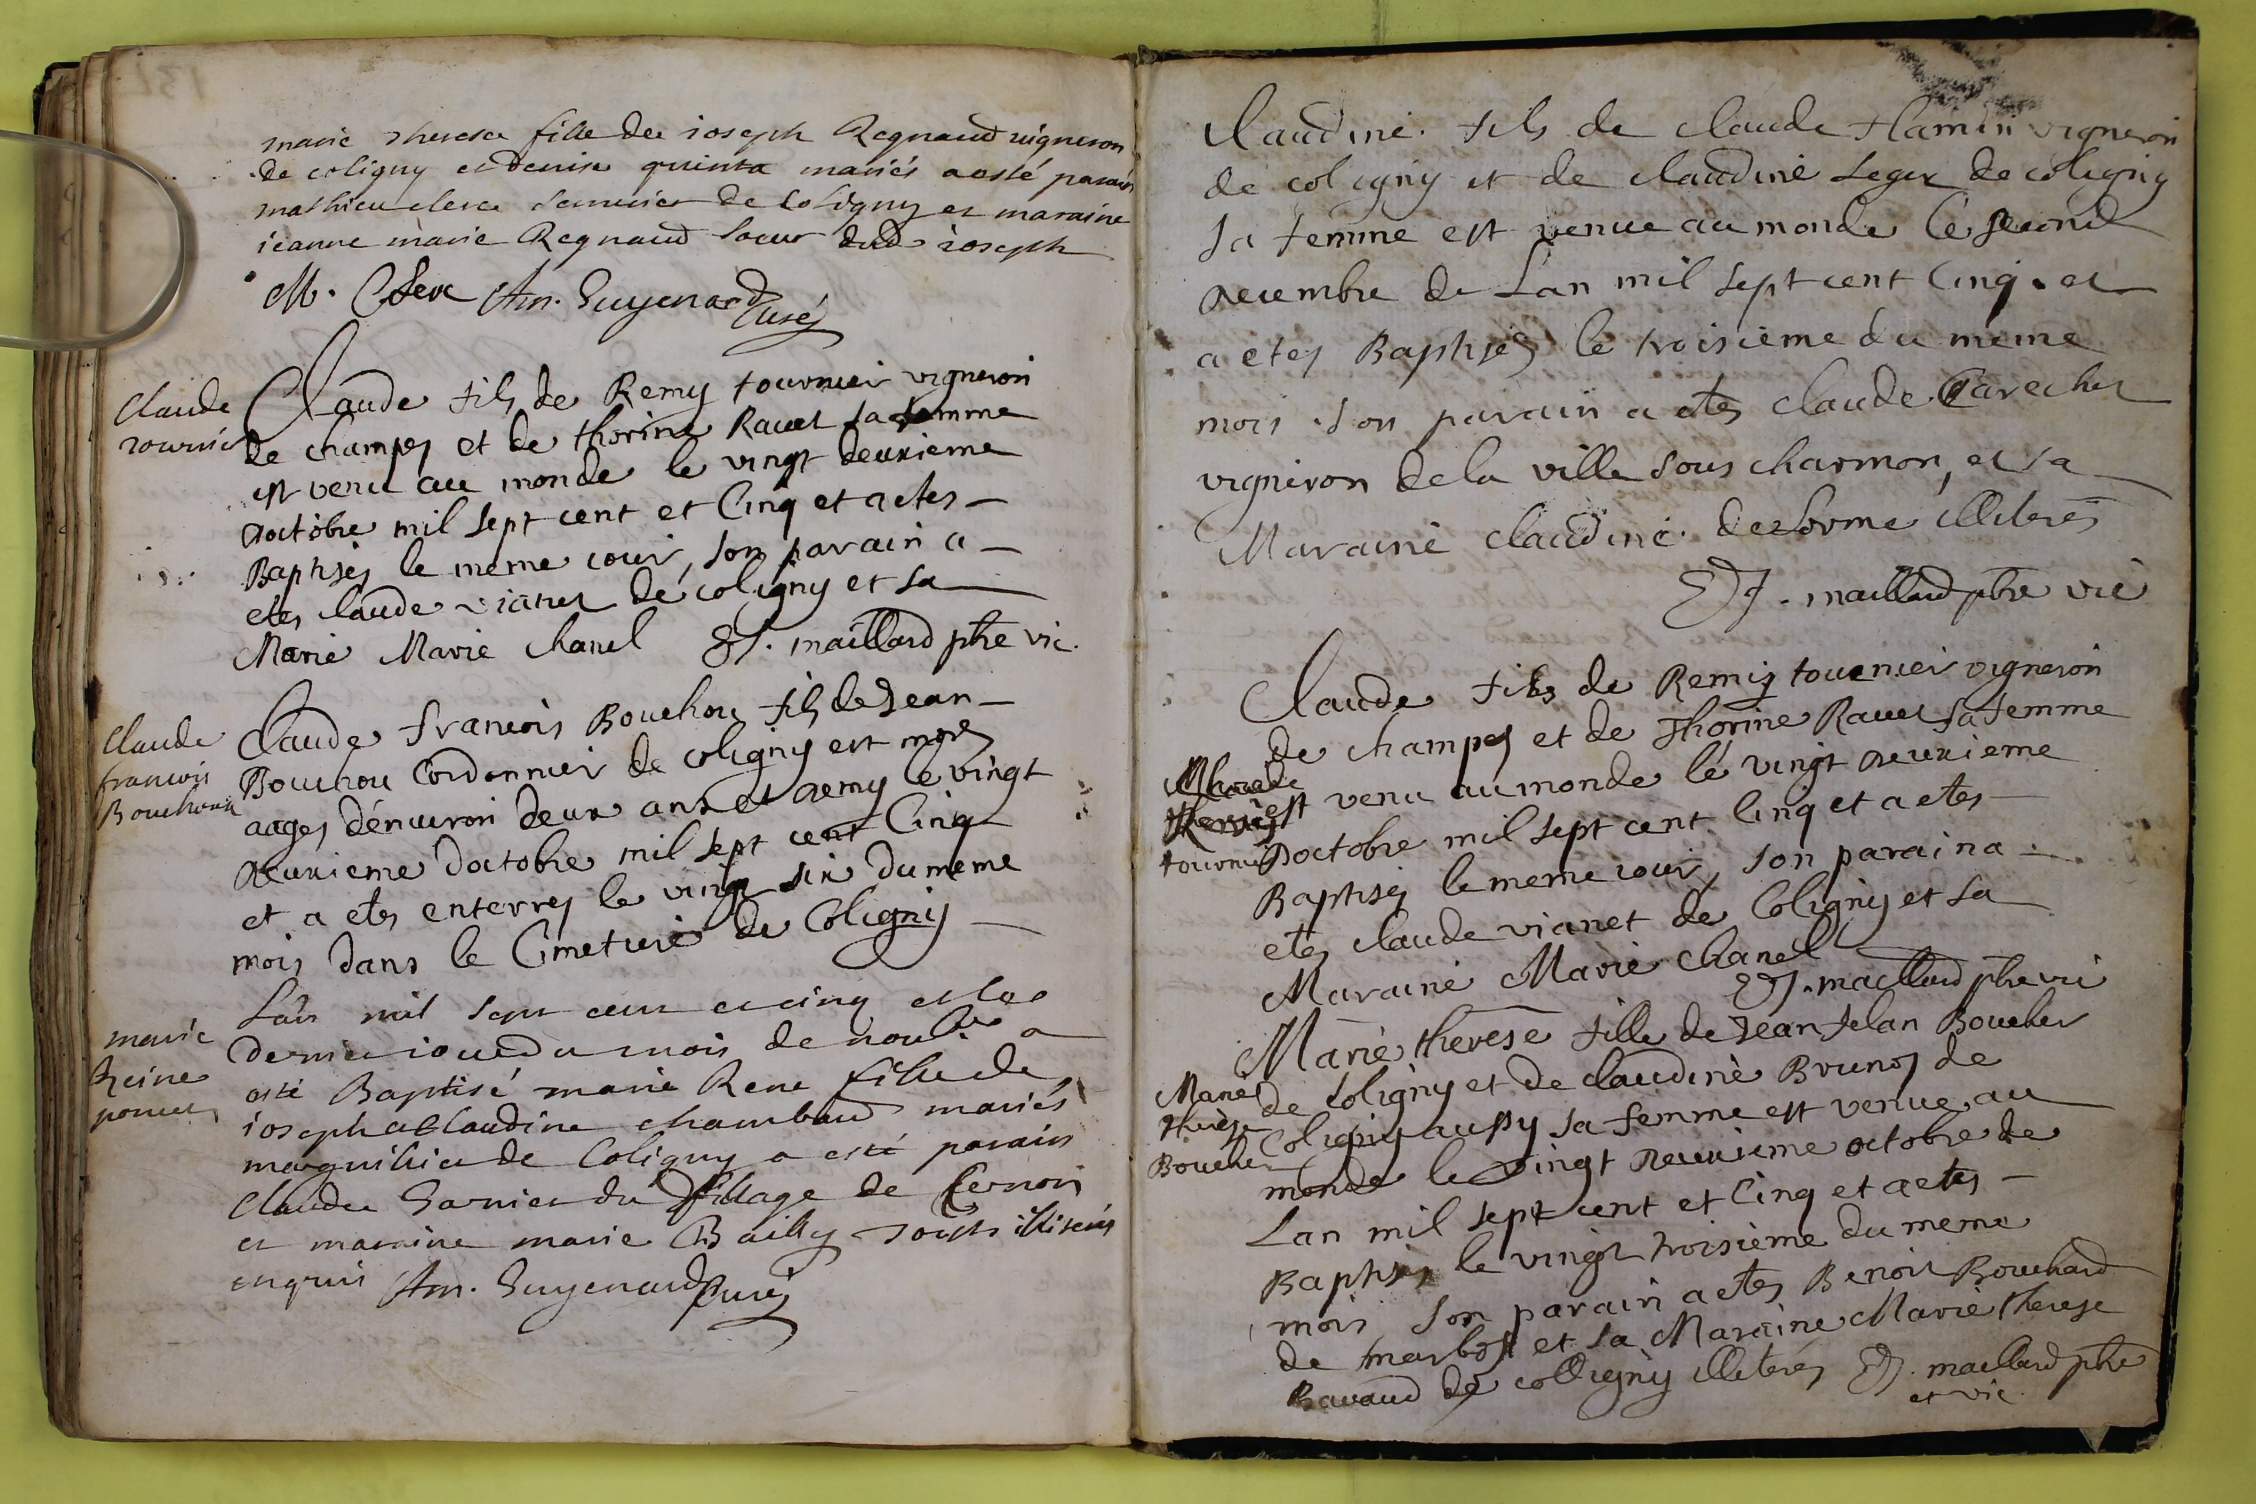 marie Therese fille de ioseph Regnaud vigneron
de coligny et denise quinta mariés a esté parain
mathieu clerc de Coligny et maraine
ieanne marie Regnaud soeur dud ioseph
M. Clerc An. Guyenard Curé
Claude
tournier
Claude fils de Remy tournier vigneron
de champes et de thorine Ravet sa femme
est venu au monde le vingt deuxieme
doctobre mil sept cent et Cinq et a etes
Baptisés le meme iour, son parain a
etes Claude vianet de coligny et sa
Marie Marie Chanel maillard ptre vic.
Claude
francois
Bouchou
Claude francois Bouchou fils de Jean
Bouchou Cordonnier de coligny est mort
aages d'enuiron deux ans et demy le vingt
deuxieme doctobre mil sept cent Cinq
et a etes enterres le vingt six du meme
mois dans le Cimetiere de Coligny
marie
Reine
poncet
Lan mil sept cent et cinq et le
dernier iour du mois de novbre a
esté Baptisé marie Rene fille de
ioseph et Claudine chambard mariés
marguillier de Coligny a esté parain
Claude Garnier du village de
et maraine marie Bailly touts illiterés
enquis An. Guyenard Curé
Claudine fils de claude flamin vigneron
de coligny et de claudine Leger de coligny
sa femme est venue au monde le second
decembre de Lan mil sept cent Cinq. et
a etes Baptisés le troisieme du meme
mois son parain a etes claude Carechet
vigneron de la ville sous charmon, et sa
Maraine claudine delorme illiterés
maillard ptre vic
Claude fils de Remy tournier vigneron
de champes et de Thorine Ravet sa femme
tournier
est venu au monde le vingt deuxieme
Doctobre mil sept cent Cinq et a etes
Baptisés le meme iour, son parain a
etes claude vianet de Coligny et sa
Maraine Marie chanel
maillard ptre vi
Marie
therese
Boucher
Marie therese fille de Jean Boucher
de Coligny et de claudine Brunos de
Coligny aussy sa femme est venue au
monde le vingt deuxieme octobre de
Lan mil sept cent et Cinq et a etes
Baptises le vingt troisieme du meme
mois, son parain a etes Benoit Bouchard
de marbost et sa Maraine Marie therese
Bavaud de colligny illiterés maillard ptre
et vic